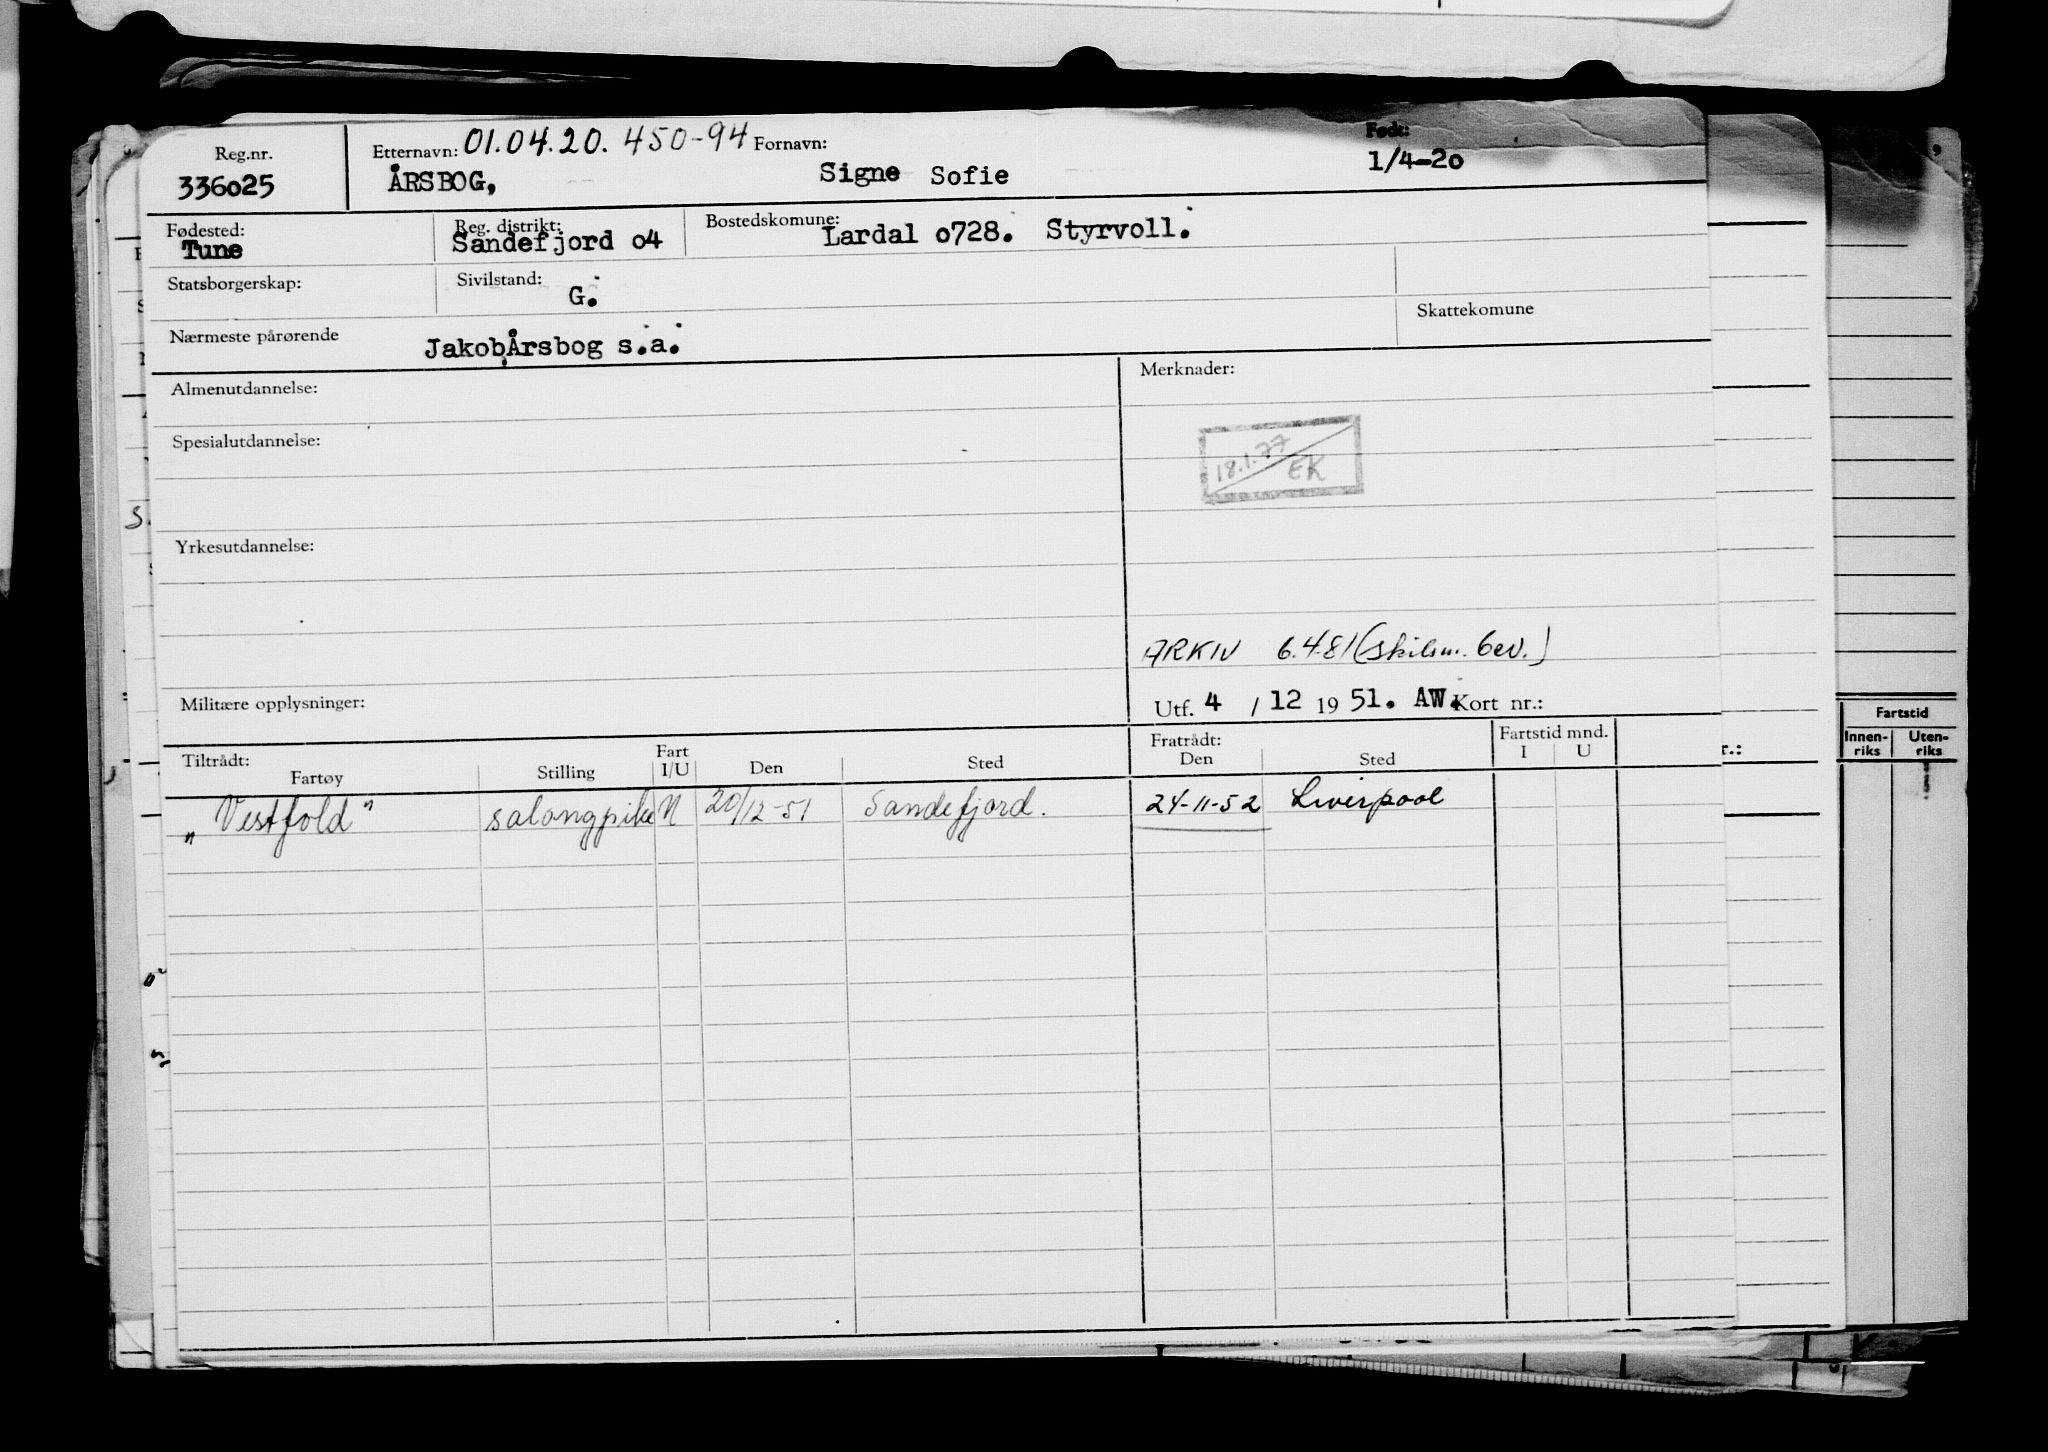 Reg.nr. Etternavn: 01.04.20. 450-94 Fornavn: Født:
336o25 ÅRSBOG, Signe Sofie 1/4-2o
Fødested: Reg. distrikt: Bostedskomune:
Tune Sandefjord o4 Lardal o728. Styrvoll.
Statsborgerskap: Sivilstand:
G.
Skattekomune
Nærmeste pårørende JakobÅrsbog s.a.
Almenutdannelse: Merknader:
18.1.77
EK
Spesialutdannelse:
Yrkesutdannelse:
ARKIV 6.4.81 (skilsm. bev.)
Militære opplysninger: Utf. 4 / 12 19 51. AW. Kort nr.:
Tiltrådt: Fart Fratrådt: Fartstid mnd.
Fartøy Stilling I/U Den Sted Den Sted I U
"Vestfold" salongpike U 20/12-51 Sandefjord. 24-11-52 Liverpool
Fartstid
Innen-riks Uten-riks
r.: